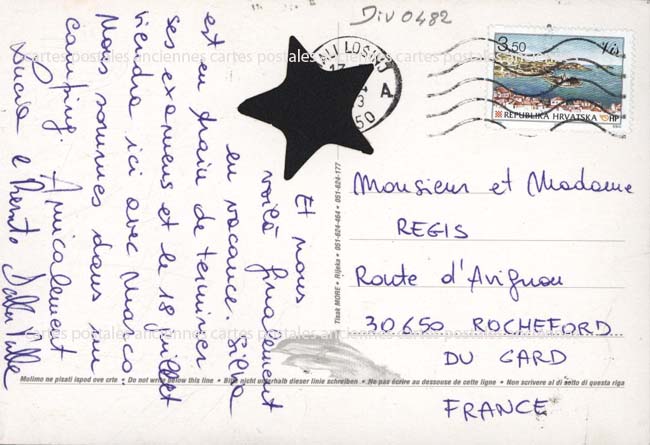 Div 0482
Et nous
voilà finalement
en vacance. Silvia
est en train de terminer
ses examens et le 18 juillet
viendra ici avec Marco.
Nous sommes dans un
camping. Amicalement
Lucia e Renato Dalla Valle
ALI LOSINJ
17
A
3
50
3,50
Vis
REPUBLIKA HRVATSKA HP
Tisak MORE • Rijeka • 051-624-464 • 051-624-177
Monsieur et Madame
REGIS
Route d'Avignon
30650 ROCHEFORD
DU GARD
FRANCE
Molimo ne pisati ispod ove crte • Do not write below this line • Bitte nicht unterhalb dieser linie schreiben • Ne pas écrire au dessouse de cette ligne • Non scrivere al di sotto di questa riga
cartes postales anciennes cartes postales anciennes cartes postales
cartes postales anciennes cartes postales anciennes cartes postales